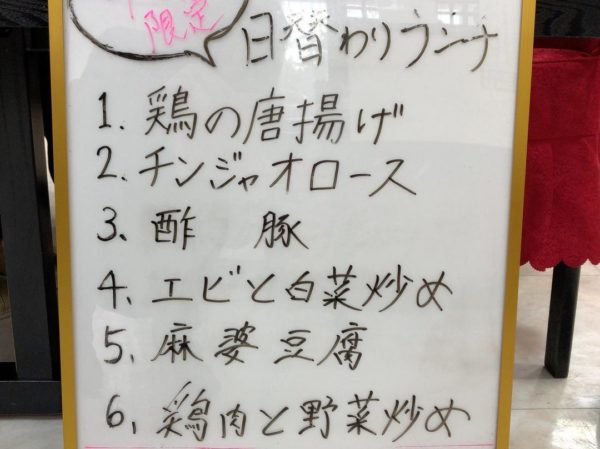 限定
日替わりランチ
1. 鶏の唐揚げ
2. チンジャオロース
3、酢 豚
4、エビと白菜炒め
5、麻婆豆腐
6、鶏肉と野菜炒め